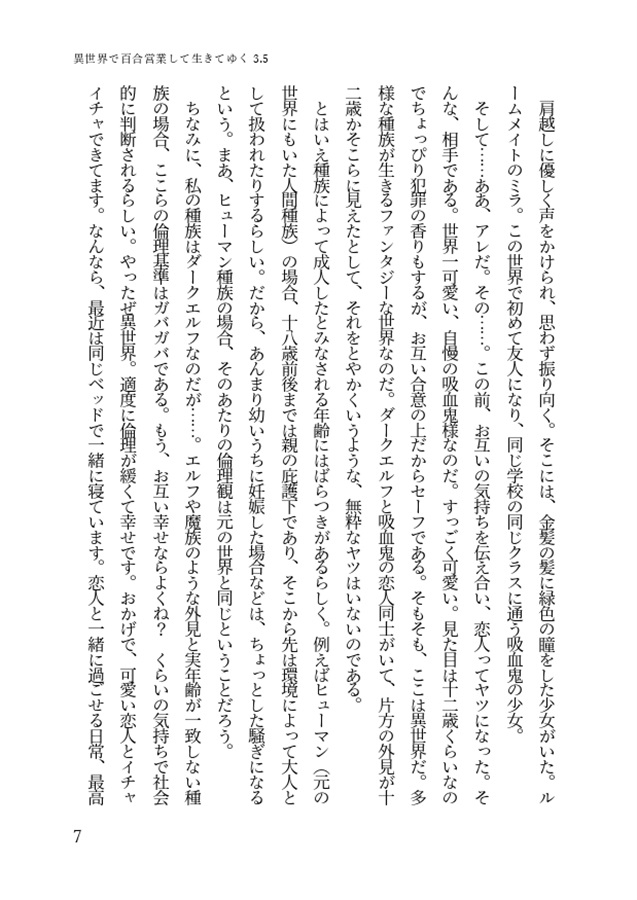 異世界で百合営業して生きてゆく 3.5
肩越しに優しく声をかけられ、思わず振り向く。そこには、金髪の髪に緑色の瞳をした少女がいた。ル
ームメイトのミラ。この世界で初めて友人になり、同じ学校の同じクラスに通う吸血鬼の少女。
そして……ああ、アレだ。その……。この前、お互いの気持ちを伝え合い、恋人ってヤツになった。そ
んな、相手である。世界一可愛い、自慢の吸血鬼様なのだ。すっごく可愛い。見た目は十二歳くらいなの
でちょっぴり犯罪の香りもするが、お互い合意の上だからセーフである。そもそも、ここは異世界だ。多
様な種族が生きるファンタジーな世界なのだ。ダークエルフと吸血鬼の恋人同士がいて、片方の外見が十
二歳かそこらに見えたとして、それをとやかくいうような、無粋なヤツはいないのである。
とはいえ種族によって成人したとみなされる年齢にはばらつきがあるらしく。例えばヒューマン（元の
世界にもいた人間種族）の場合、十八歳前後までは親の庇護下であり、そこから先は環境によって大人と
して扱われたりするらしい。だから、あんまり幼いうちに妊娠した場合などは、ちょっとした騒ぎになる
という。まあ、ヒューマン種族の場合、そのあたりの倫理観は元の世界と同じということだろう。
ちなみに、私の種族はダークエルフなのだが……。エルフや魔族のような外見と実年齢が一致しない種
族の場合、ここらの倫理基準はガバガバである。もう、お互い幸せならよくね？　くらいの気持ちで社会
的に判断されるらしい。やったぜ異世界。適度に倫理が緩くて幸せです。おかげで、可愛い恋人とイチャ
イチャできてます。なんなら、最近は同じベッドで一緒に寝ています。恋人と一緒に過ごせる日常、最高
7